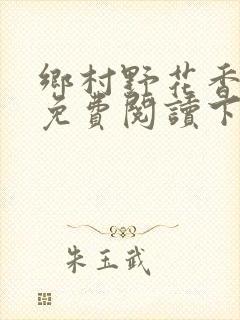 鄉村野花香
免費閱讀下
朱玉武